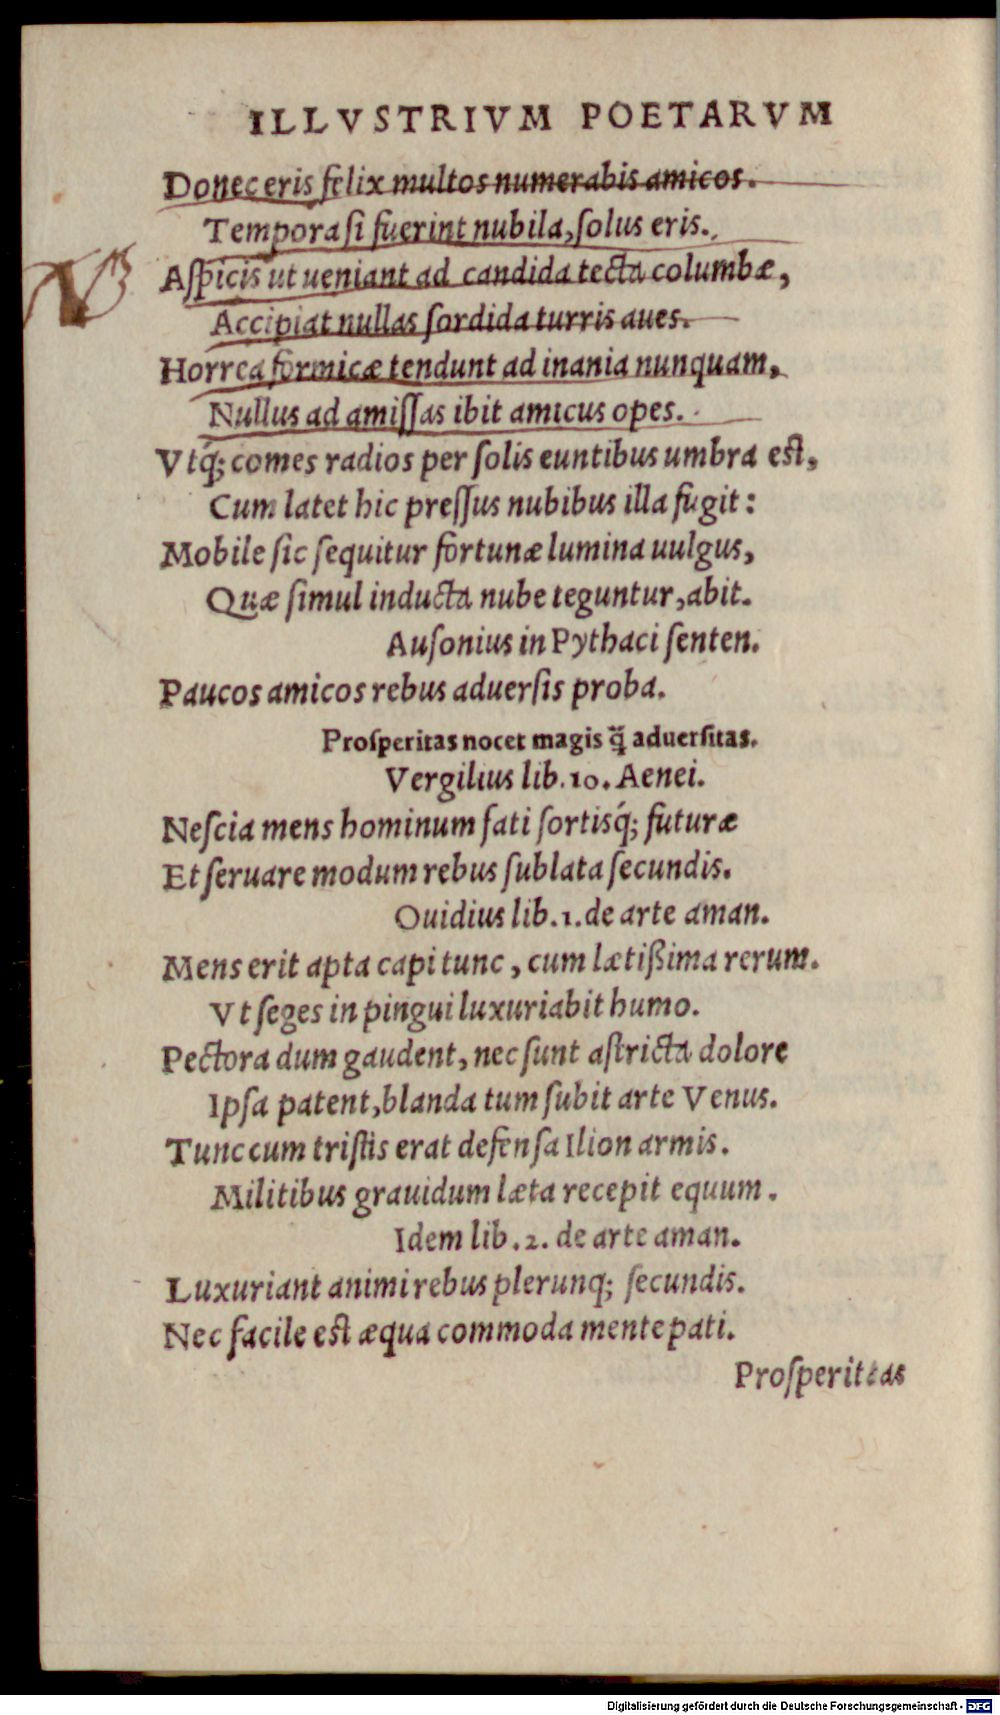 ILLVSTRIVM POETARVM
Donec eris felix multos numerabis amicos.
Tempora si fuerint nubila, solus eris.
NB
Aspicis ut ueniant ad candida tecta columbæ,
Accipiat nullas sordida turris aues.
Horrea formicæ tendunt ad inania nunquam,
Nullus ad amissas ibit amicus opes.
Vtq́; comes radios per solis euntibus umbra est,
Cum latet hic pressus nubibus illa fugit:
Mobile sic sequitur fortunæ lumina uulgus,
Quæ simul inducta nube teguntur, abit.
Ausonius in Pythaci senten.
Paucos amicos rebus aduersis proba.
Prosperitas nocet magis q̃ aduersitas.
Vergilius lib. 10. Aenei.
Nescia mens hominum fati sortisq́; futuræ
Et seruare modum rebus sublata secundis.
Ouidius lib. 1. de arte aman.
Mens erit apta capi tunc, cum lætißima rerum.
Vt seges in pingui luxuriabit humo.
Pectora dum gaudent, nec sunt astricta dolore
Ipsa patent, blanda tum subit arte Venus.
Tunc cum tristis erat defensa Ilion armis.
Militibus grauidum læta recepit equum.
Idem lib. 2. de arte aman.
Luxuriant animi rebus plerunq; secundis.
Nec facile est æqua commoda mente pati.
Prosperitas
Digitalisierung gefördert durch die Deutsche Forschungsgemeinschaft - DFG